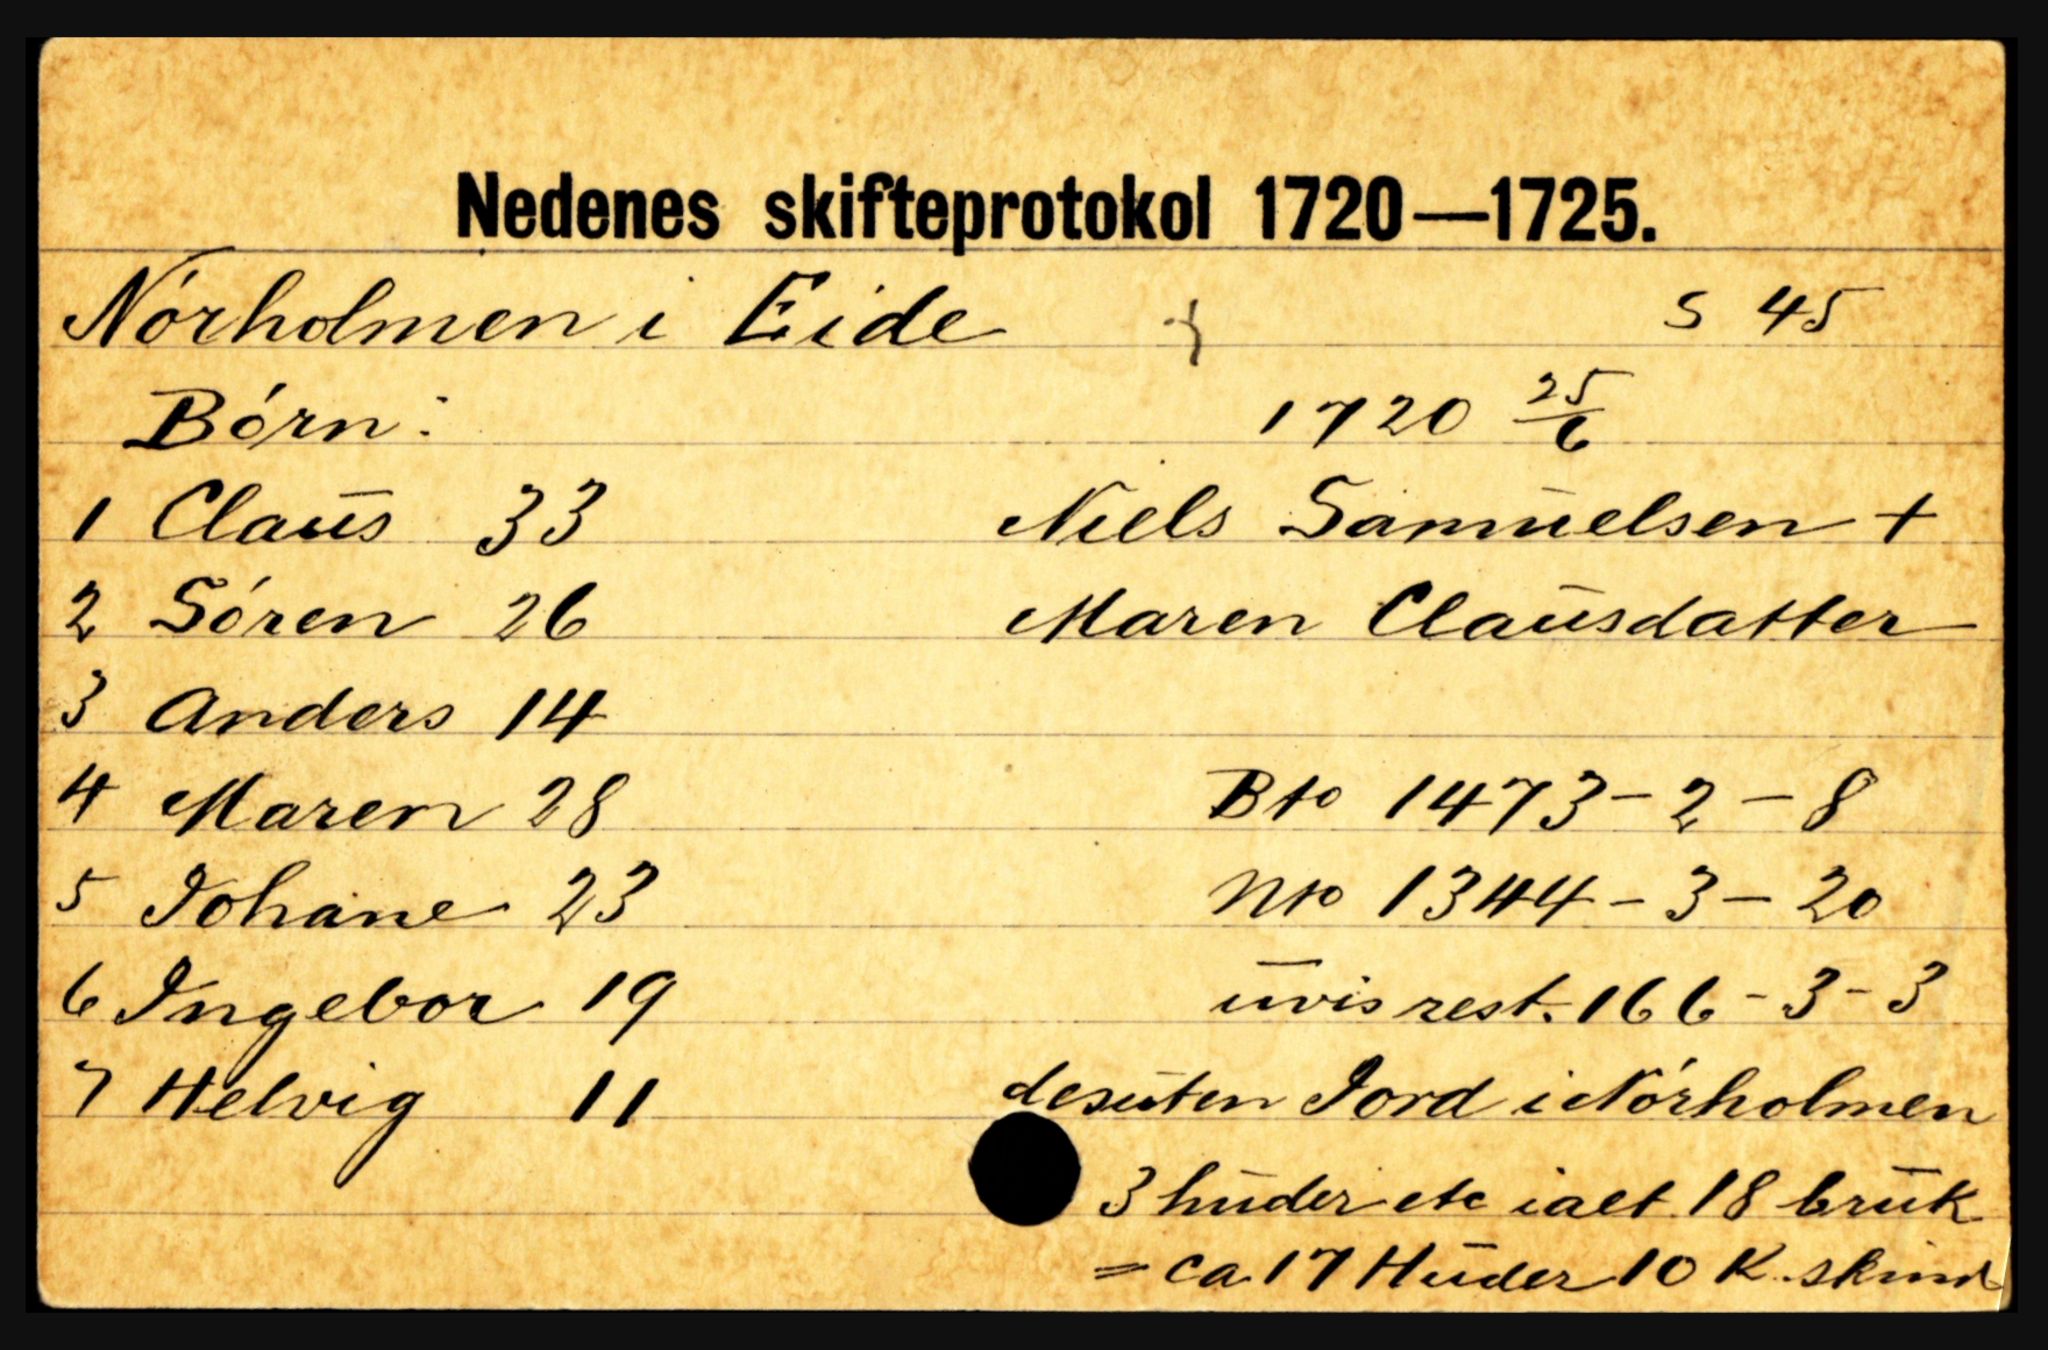 Nedenes skifteprotokol 1720—1725.
Nórholmen i Eide
S 45
Bórn:
1720 25/6
1 Claus 33
Niels Samuelsen +
2 Sóren 26
Maren Clausdatter
3 Anders 14
4 Maren 28
Bto 1473-2-8
5 Johane 23
Nto 1344-3-20
6 Ingebor 19
uvis rest. 166-3-3
7 Helvig 11
desuten Jord i Nórholmen
3 huder etc ialt 18 bruk
= ca 17 Huder 10 K. skind